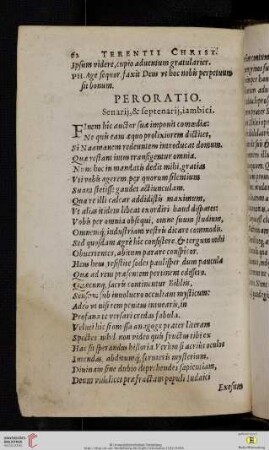 62 TERENTII CHRIST.
Ipsum videre, cupio aduentum gratularier.
PH. Age sequor. faxit Deus vt hoc nobis perpetuum
sit bonum.
PERORATIO.
Senarij, & septenarij, iambici.
Finem hic auctor suæ imponit comœdiæ:
Ne quis eam æquo prolixiorem dictitet,
Si Naamanem redeuntem introducat domum.
Quæ restant intus transigentur omnia.
Nunc hoc in mandatis dedit mihi, gratias
Vti vobis agerem, per quorum silentium
Suaui stetisse gaudet actiunculam.
Quare illi calcar addidistis maximum,
Vt alias itidem libeat exordiri haud dispares:
Vobis per omnia obsequi, omne suum studium,
Omnemque industriam vestris dicare commodis.
Sed quosdam ægrè hic consistere, & tergum mihi
Obuertentes, abitum parare conspicor.
Heus heus, restitisse sodes paulisper dum paucula
Quæ ad rem præsentem perimēt edissero.
Quæcunque sacris continentur Biblijs,
Sensum sub inuolucro occultant mysticum:
Adeo vt nisi rem penitus introëas, in
Profana te versari credas fabula.
Velut hic si sine anagoge præter literam
Spectes nihil non video quis fructus tibi ex
Hac sit sperandus historia. Verùm si acrius oculos
Intendas, abditumque scruteris mysterium,
Diuinam sine dubio deprehendes sapientiam,
Donec vindices præfractam populi Iudaici
Exosum